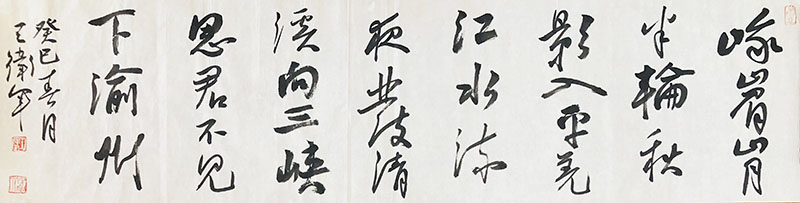 峨眉山月
半輪秋
影入平羌
江水流
夜發清
溪向三峽
思君不見
下渝州
癸巳春月
王